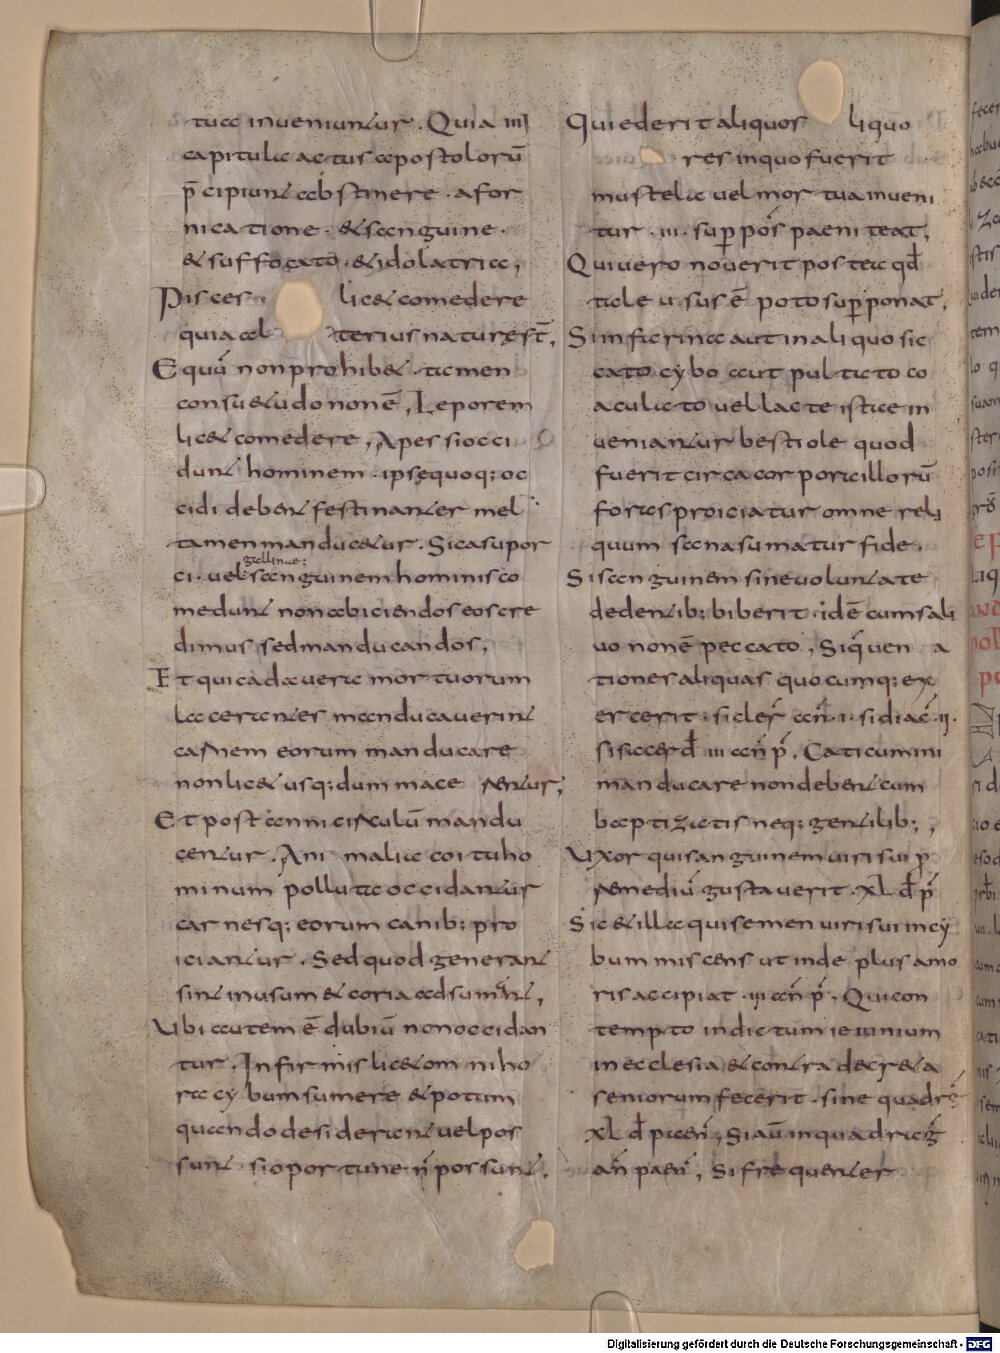 tua inveniuntur. Quia IIII
capitula actus apostolorū
p̄cipiunt abstinere. a for
nicatione. & sanguine.
& suffocato. & idolatria,
Pisces lic& comedere
quia alterius naturę st̄,
Equū non prohib&. tamen
consu&udo non ē, Leporem
lic& comedere, Apes si occi
dunt hominem. ipsę quoq; oc
cidi debent festinanter mel
tamen manduc&ur. Si casu por
gallinae:
ci. vel sanguinem hominis co
medunt non abiciendos eos cre
dimus, sed manducandos,
Et qui cadavera mortuorum
lacerantes manducaverint
carnem eorum manducare
non lic& usq; dum mace rentur,
Et post anni circulū mandu
centur. Animalia coitu ho
minum polluta occidantur
carnesq; eorum canib; pro
iciantur. Sed quod generant
sint in usum & coria adsumant,
Ubi autem ē dubiū non occidan
tur. Infirmis lic& omni ho
ra cybum sumere & potum
quando desiderant vel pos
sunt. si oportune n̄ possunt.
Qui ederit aliquos liquo
res in quo fuerit
mustela vel mors tua inveni
tur. III. superpos̄ paeniteat,
Qui vero noverit postea qd̄
tale usus ē poto superponat,
Si in farina aut in aliquo sic
cato cybo aut pultato co
aculato vel lacte istae in
veniantur bestiole quod
fuerit circa corpora illorū
foras proiciatur omne reli
quum sana sumatur fide.
Si sanguinem sine voluntate
dedentib; biberit. idē cum sali
vo non ē peccato, Si quen a
tiones aliquas quocumq; ex
ercerit. si cler̄ ann̄. I. si diac̄. II.
si sacerd̄ III ann̄ p̄. Caticumini
manducare non debent cum
baptizatis neq; gentilib;,
Uxor qui sanguinem viri sui p̄
remediū gustaverit. XL d̄ p̄
Sic & illa qui semen viri sui in cy
bum miscens ut inde plus amo
ris accipiat. III ann̄ p̄. Qui con
tempto indictum ieiunium
in ecclesia & contra decr&a
seniorum fecerit. sine quadraḡ
XL d̄ paen̄, Si aū in quadraḡ
an̄ paen̄, Si frequenter
Digitalisierung gefördert durch die Deutsche Forschungsgemeinschaft - DFG